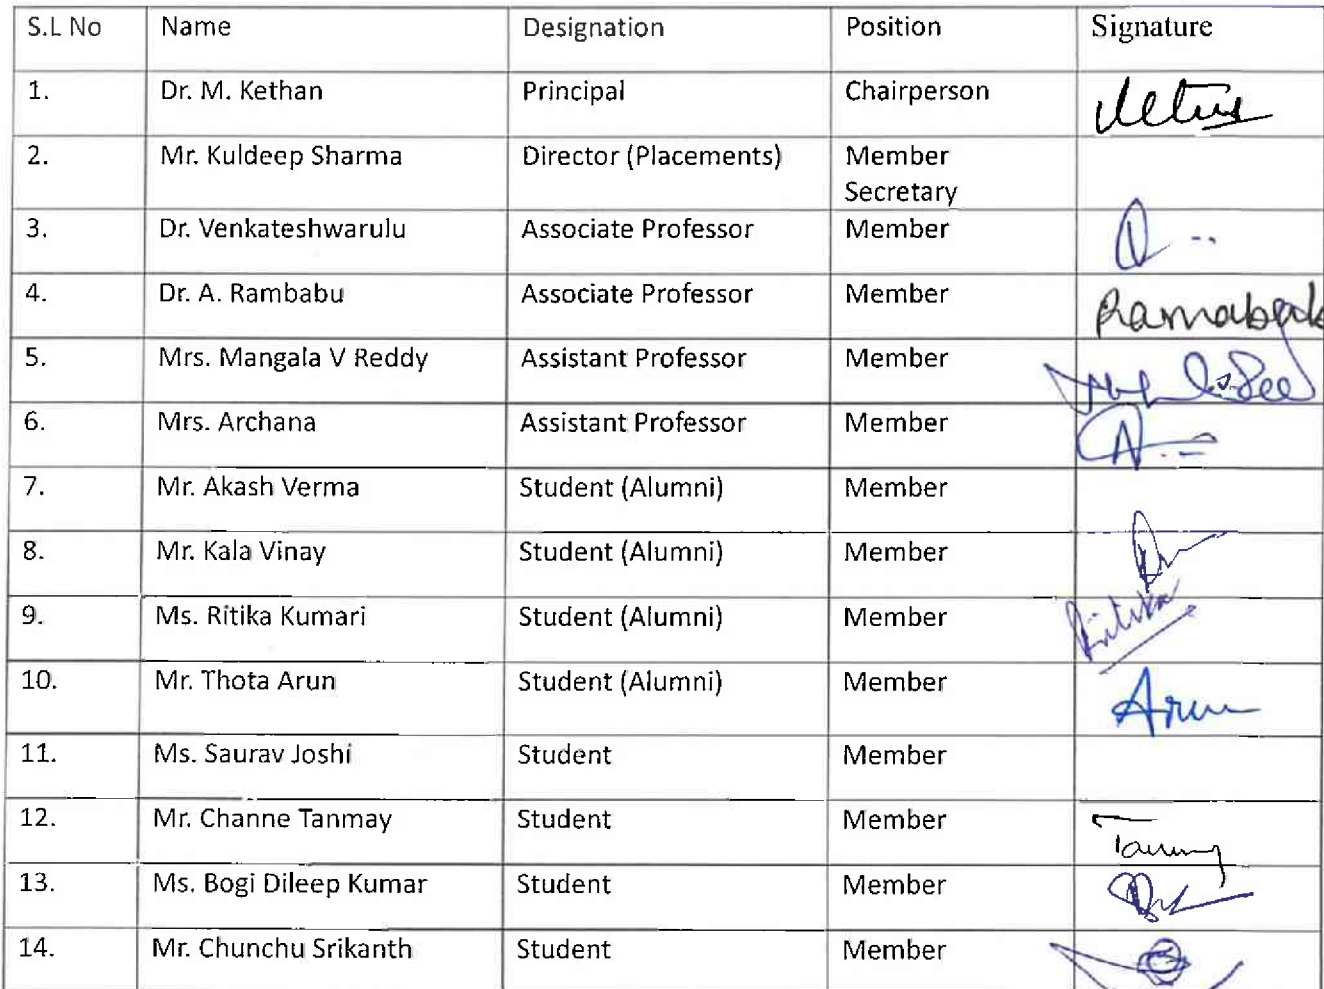 S.L No Name Designation Position Signature
1. Dr. M. Kethan Principal Chairperson
2. Mr. Kuldeep Sharma Director (Placements) Member
Secretary
3. Dr. Venkateshwarulu Associate Professor Member
4. Dr. A. Rambabu Associate Professor Member
5. Mrs. Mangala V Reddy Assistant Professor Member
6. Mrs. Archana Assistant Professor Member
7. Mr. Akash Verma Student (Alumni) Member
8. Mr. Kala Vinay Student (Alumni) Member
9. Ms. Ritika Kumari Student (Alumni) Member Ritika
10. Mr. Thota Arun Student (Alumni) Member Arun
11. Ms. Saurav Joshi Student Member
12. Mr. Channe Tanmay Student Member
13. Ms. Bogi Dileep Kumar Student Member
14. Mr. Chunchu Srikanth Student Member